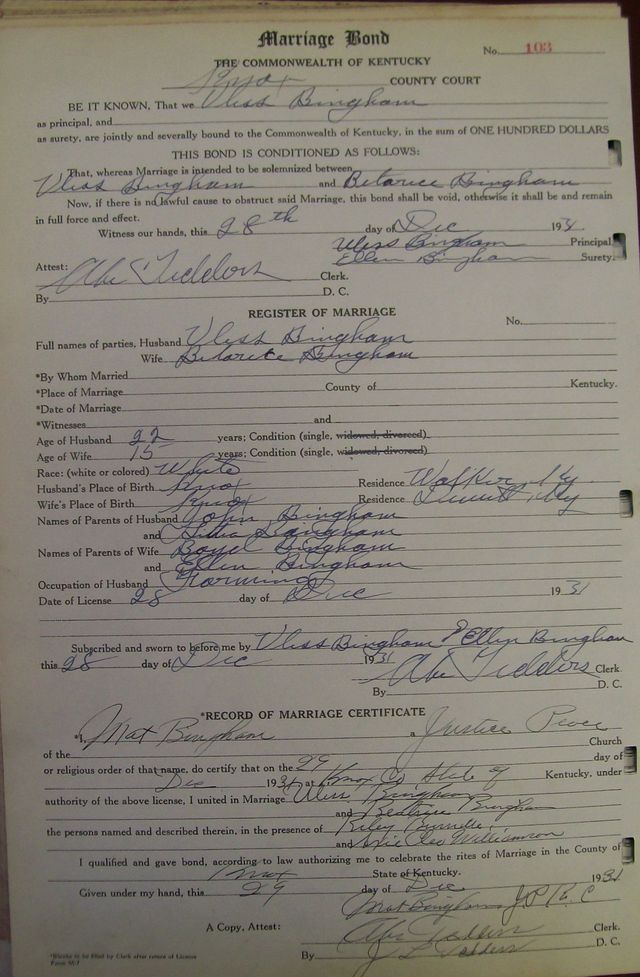 Marriage Bond
No. 103
THE COMMONWEALTH OF KENTUCKY
Knox COUNTY COURT
BE IT KNOWN, That we Uliss Bingham
as principal, and
as surety, are jointly and severally bound to the Commonwealth of Kentucky, in the sum of ONE HUNDRED DOLLARS
THIS BOND IS CONDITIONED AS FOLLOWS:
That, whereas Marriage is intended to be solemnized between
Uliss Bingham and Betarice Bingham
Now, if there is no lawful cause to obstruct said Marriage, this bond shall be void, otherwise it shall be and remain
in full force and effect.
Witness our hands, this 28th day of Dec 193
Uliss Bingham Principal
Ellen Bingham Surety.
Attest:
Abe Clerk.
By D. C.
REGISTER OF MARRIAGE
No.
Full names of parties, Husband Uliss Bingham
Wife Betarice Bingham
*By Whom Married
*Place of Marriage County of Kentucky.
*Date of Marriage
*Witnesses and
Age of Husband 22 years; Condition (single, widowed, divorced)
Age of Wife 15 years; Condition (single, widowed, divorced)
Race: (white or colored) White
Husband's Place of Birth Knox Residence Walker, Ky
Wife's Place of Birth Knox Residence Ky
Names of Parents of Husband John Bingham
and Bingham
Names of Parents of Wife Boyd Bingham
and Ellen Bingham
Occupation of Husband Farming
Date of License 28 day of Dec 1931
Subscribed and sworn to before me by Uliss Bingham & Ellen Bingham
this 28 day of Dec 1931
Abe Clerk
By D. C.
*RECORD OF MARRIAGE CERTIFICATE
*I, Mat Bingham a Justice Peace
of the Church
or religious order of that name, do certify that on the 29 day of
Dec 1931 at Knox Co State of Kentucky, under
authority of the above license, I united in Marriage Uliss Bingham
and Beatrice Bingham
the persons named and described therein, in the presence of Riley
and Williamson
I qualified and gave bond, according to law authorizing me to celebrate the rites of Marriage in the County of
Knox State of Kentucky.
Given under my hand, this 29 day of Dec 1931
Mat Bingham J P K C
A Copy, Attest: Abe Clerk.
By D. C.
*Blanks to be filled by Clerk after return of License